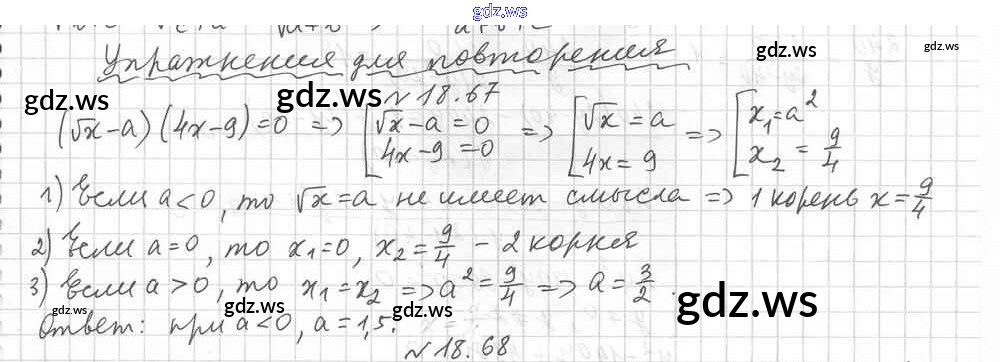 gdz.ws
Упражнения для повторения
gdz.ws
gdz.ws
gdz.ws
gdz.ws
№18.67
(√x-a)(4x-9)=0 => [√x-a=0 4x-9=0 => [√x=a 4x=9 => [x₁=a² x₂=9/4
1) Если a<0, то √x=a не имеет смысла => 1 корень x=9/4
2) Если a=0, то x₁=0, x₂=9/4 - 2 корня
3) Если a>0, то x₁=x₂ => a²=9/4 => a=3/2.
gdz.ws
gdz.ws
gdz.ws
gdz.ws
Ответ: при a<0, a=1,5.
№18.68